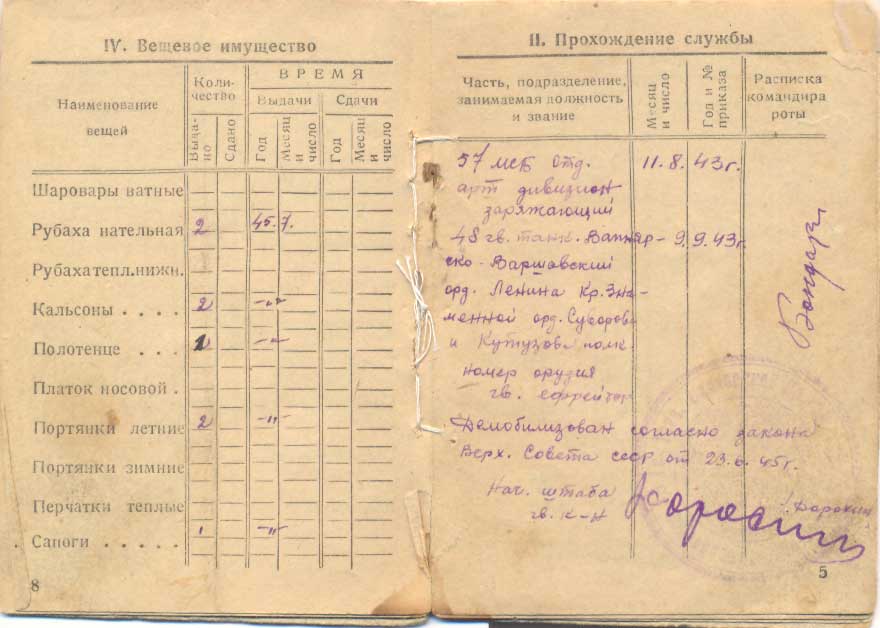 IV. Вещевое имущество
Наименование вещей
Коли-
чество
ВРЕМЯ
Выдачи
Сдачи
Выда-
но
Сдано
Год
Месяц
и
число
Год
Месяц
и
число
Шаровары ватные
Рубаха нательная 2 45. 7.
Рубаха тепл.нижн.
Кальсоны . . . . 2 -"-
Полотенце . . . 1 -"-
Платок носовой .
Портянки летние 2 -"-
Портянки зимние
Перчатки теплые
Сапоги . . . . . 1 -"-
8
II. Прохождение службы
Часть, подразделение,
занимаемая должность
и звание
Месяц
и число
Год и №
приказа
Расписка
командира
роты
57 мсб отд. 11.8. 43г.
арт дивизион
заряжающий
48 гв. танк. Вапняр- 9.9.43г.
ско-Варшовский
орд. Ленина Кр.Зна-
менной орд. Суворова
и Кутузова полк.
номер орудия
гв. ефрейтор
Бондарь
Демобилизован согласно закона
Верх. Совета ссср от 23.6.45г.
Нач. штаба
гв. к-н
5